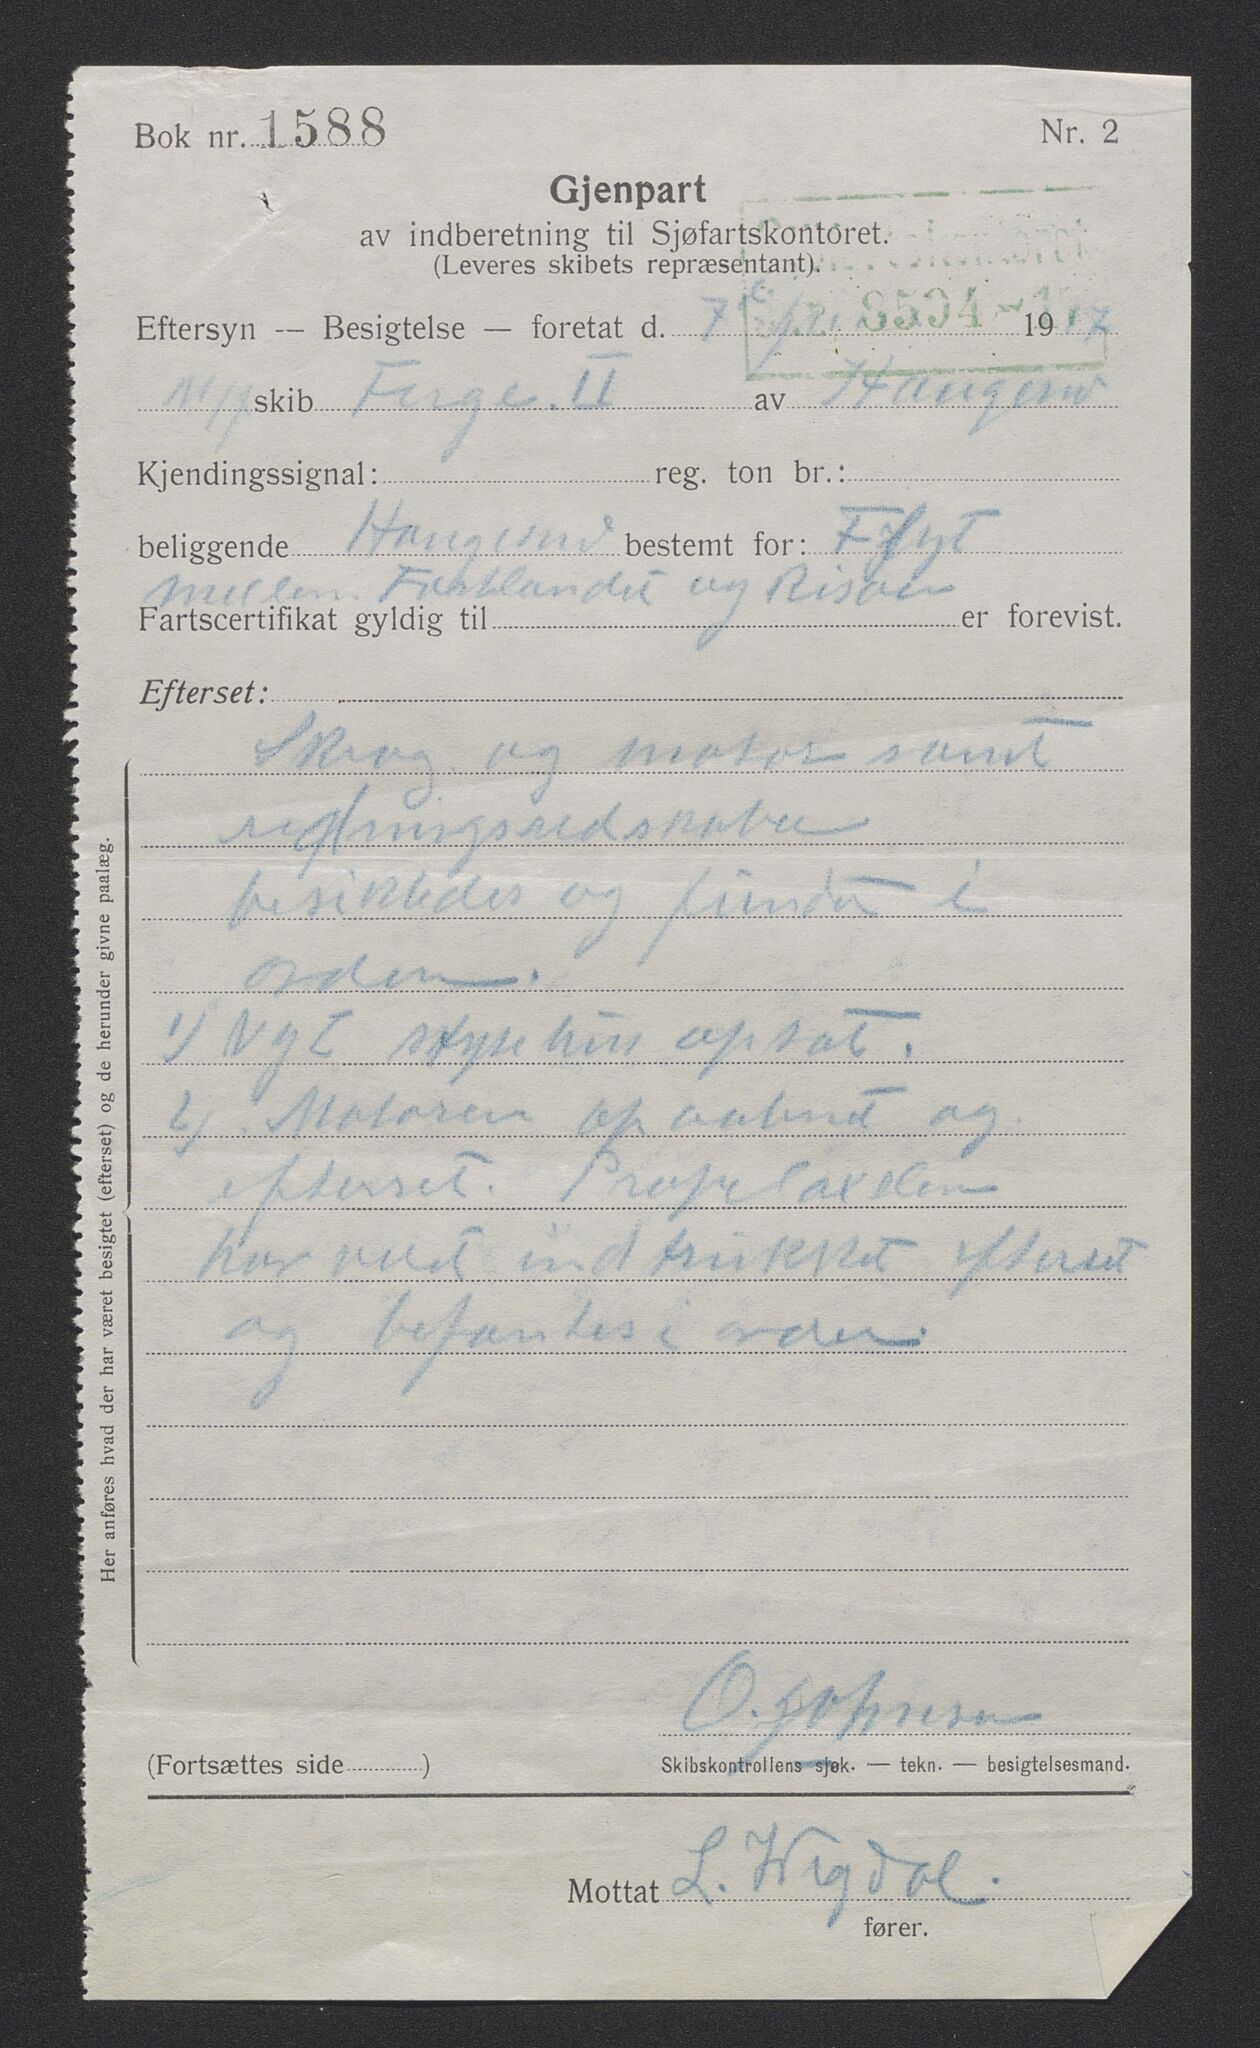 Bok nr. 1588 Nr. 2
Gjenpart
av indberetning til Sjøfartskontoret.
(Leveres skibets repræsentant).
Eftersyn — Besigtelse — foretat d. 7 1917
skib Ferge. II av Haugesund
Kjendingssignal: reg. ton br.:
beliggende Haugesund bestemt for:
mellem Fastlandet og Risøen
Fartscertifikat gyldig til er forevist.
Efterset:
Skrog og motor samt
redningsredskaber
besiktedes og fundet i
orden.
1) Nyt styrehus opsat.
2) Motoren opaabnet og
efterset. Propelaxelen
har vært indtrukket efterset
og befantes i orden.
Her anføres hvad der har været besigtet (efterset) og de herunder givne paalæg.
O. Johnsen
(Fortsættes side )
Skibskontrollens sjøk. — tekn. — besigtelsesmand.
Mottat L. Vigdal.
fører.